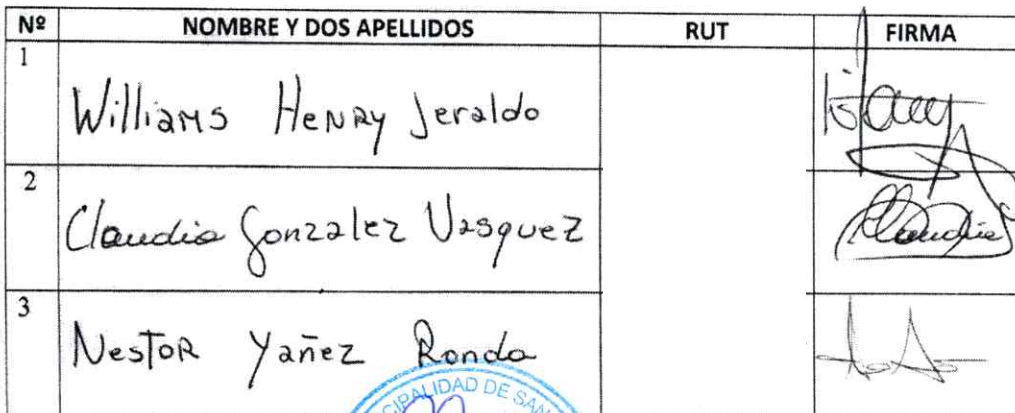 Nº NOMBRE Y DOS APELLIDOS RUT FIRMA
1 Williams Henry Jeraldo
2 Claudia Gonzalez Vasquez Claudia
3 Nestor Yañez Rondo
CIPALIDAD DE SAN